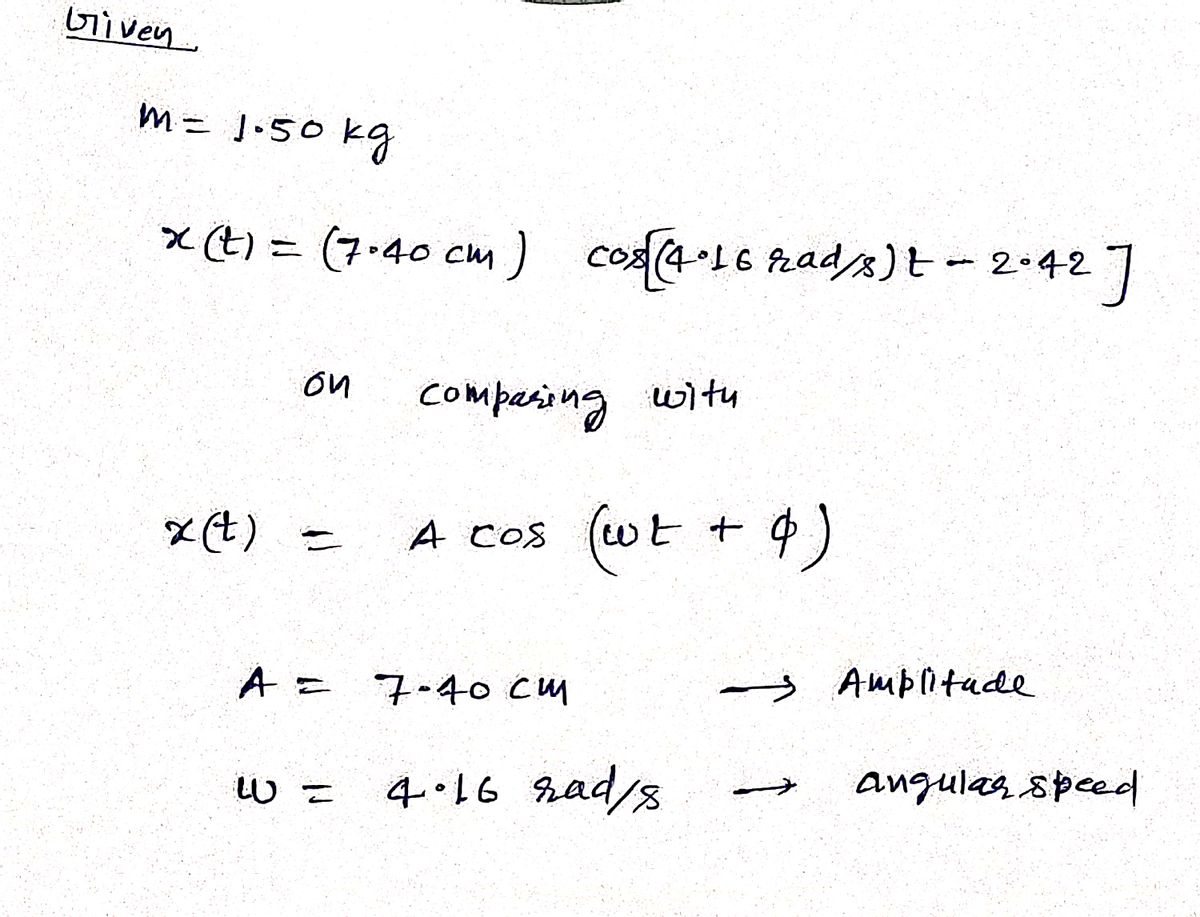 Given
m = 1.50 kg
x(t) = (7.40 cm) cos[(4.16 rad/s)t - 2.42]
on comparing with
x(t) = A cos (ωt + φ)
A = 7.40 cm → Amplitude
ω = 4.16 rad/s → angular speed